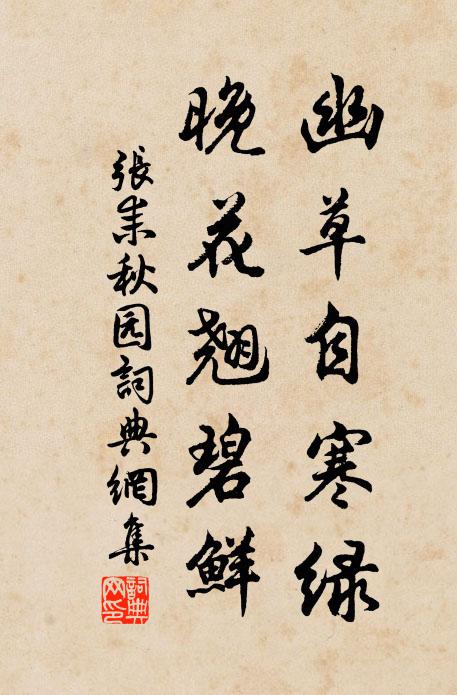 幽草自寒绿
晚花翘碧鲜
張耒秋园詞典網集
詞典网印